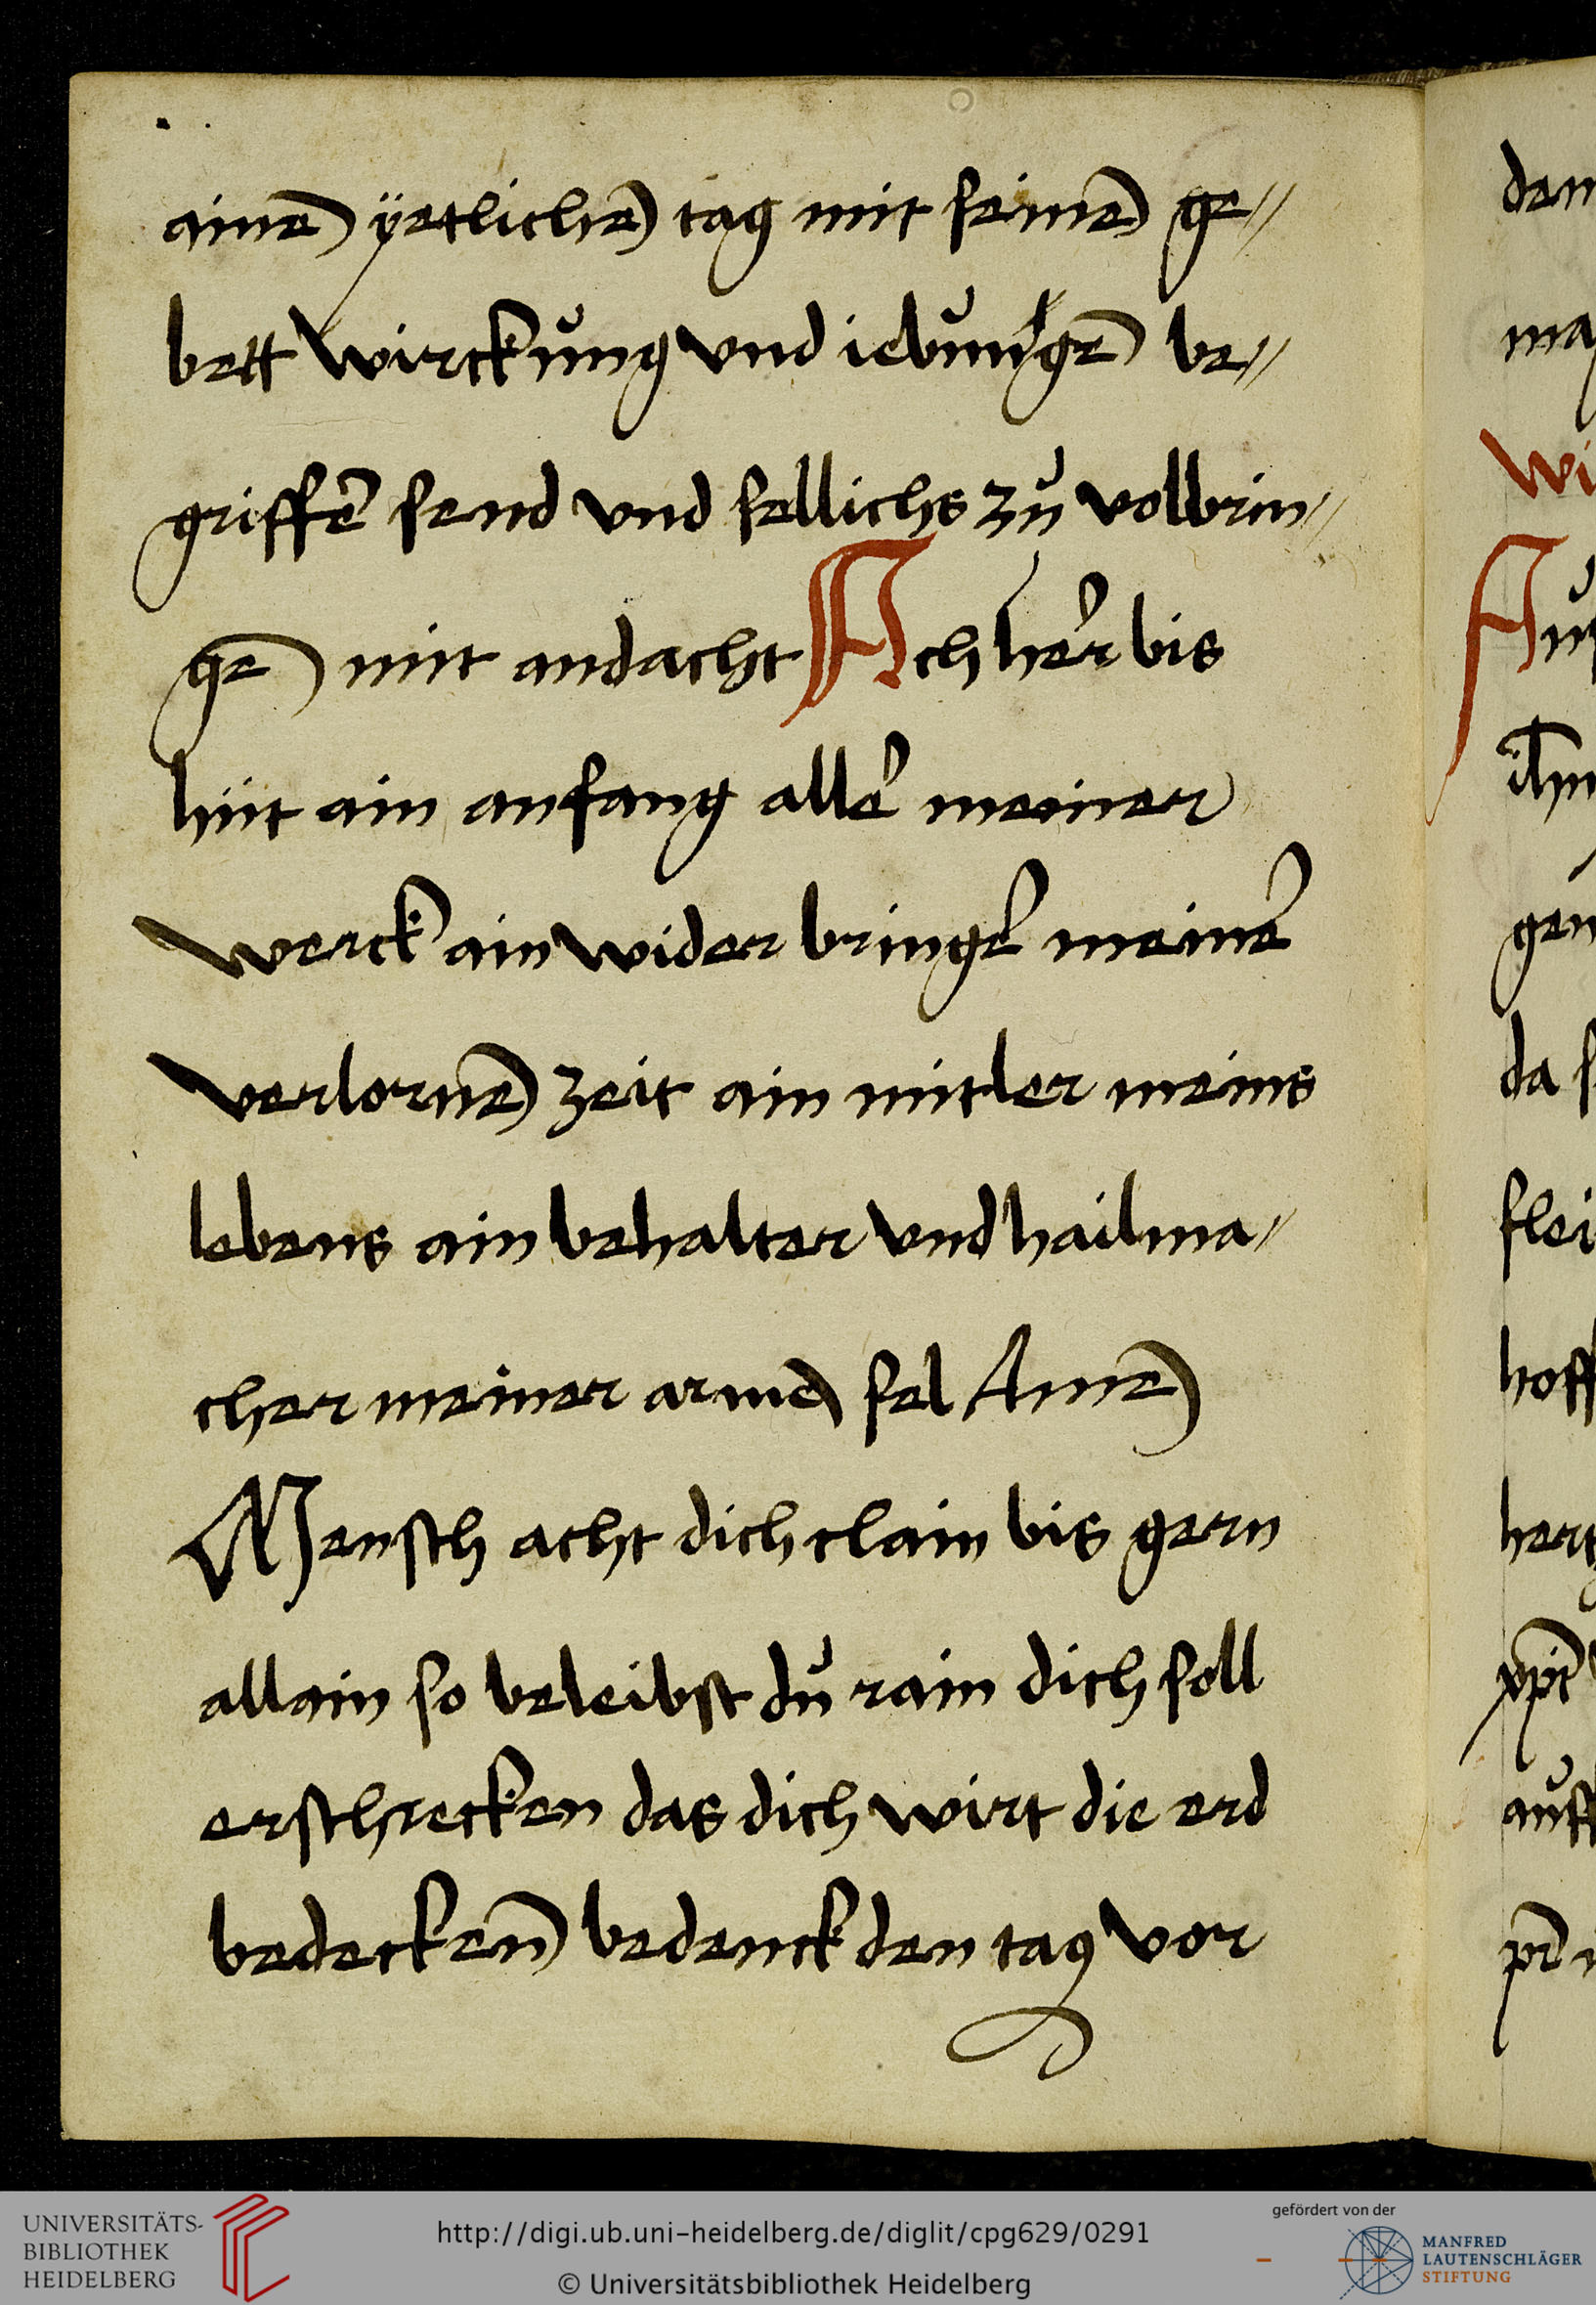 ainē yetlichē tag mit seinē ge//
bett wirckŭng vnd iebungē be//
griffē send vnd sellichs zŭ volbrin//
gē mit andacht Ach her bis
hüt ain anfang aller meiner
werck ain wider bringer meiner
verlornē zeit ain mitler meins
lebens ain behalter vnd hailma/
cher meiner armē sel Amē
Mensch acht dich clain bis gern
allain so beleibst dŭ rain dich soll
erschrecken das dich wirt die erd
bedecken bedenck den tag vor
den
ma
wi
Auf
gen
da s
flei
hoff
auff
UNIVERSITÄTS-
BIBLIOTHEK
HEIDELBERG
http://digi.ub.uni-heidelberg.de/diglit/cpg629/0291
© Universitätsbibliothek Heidelberg
gefördert von der
MANFRED
LAUTENSCHLÄGER
STIFTUNG